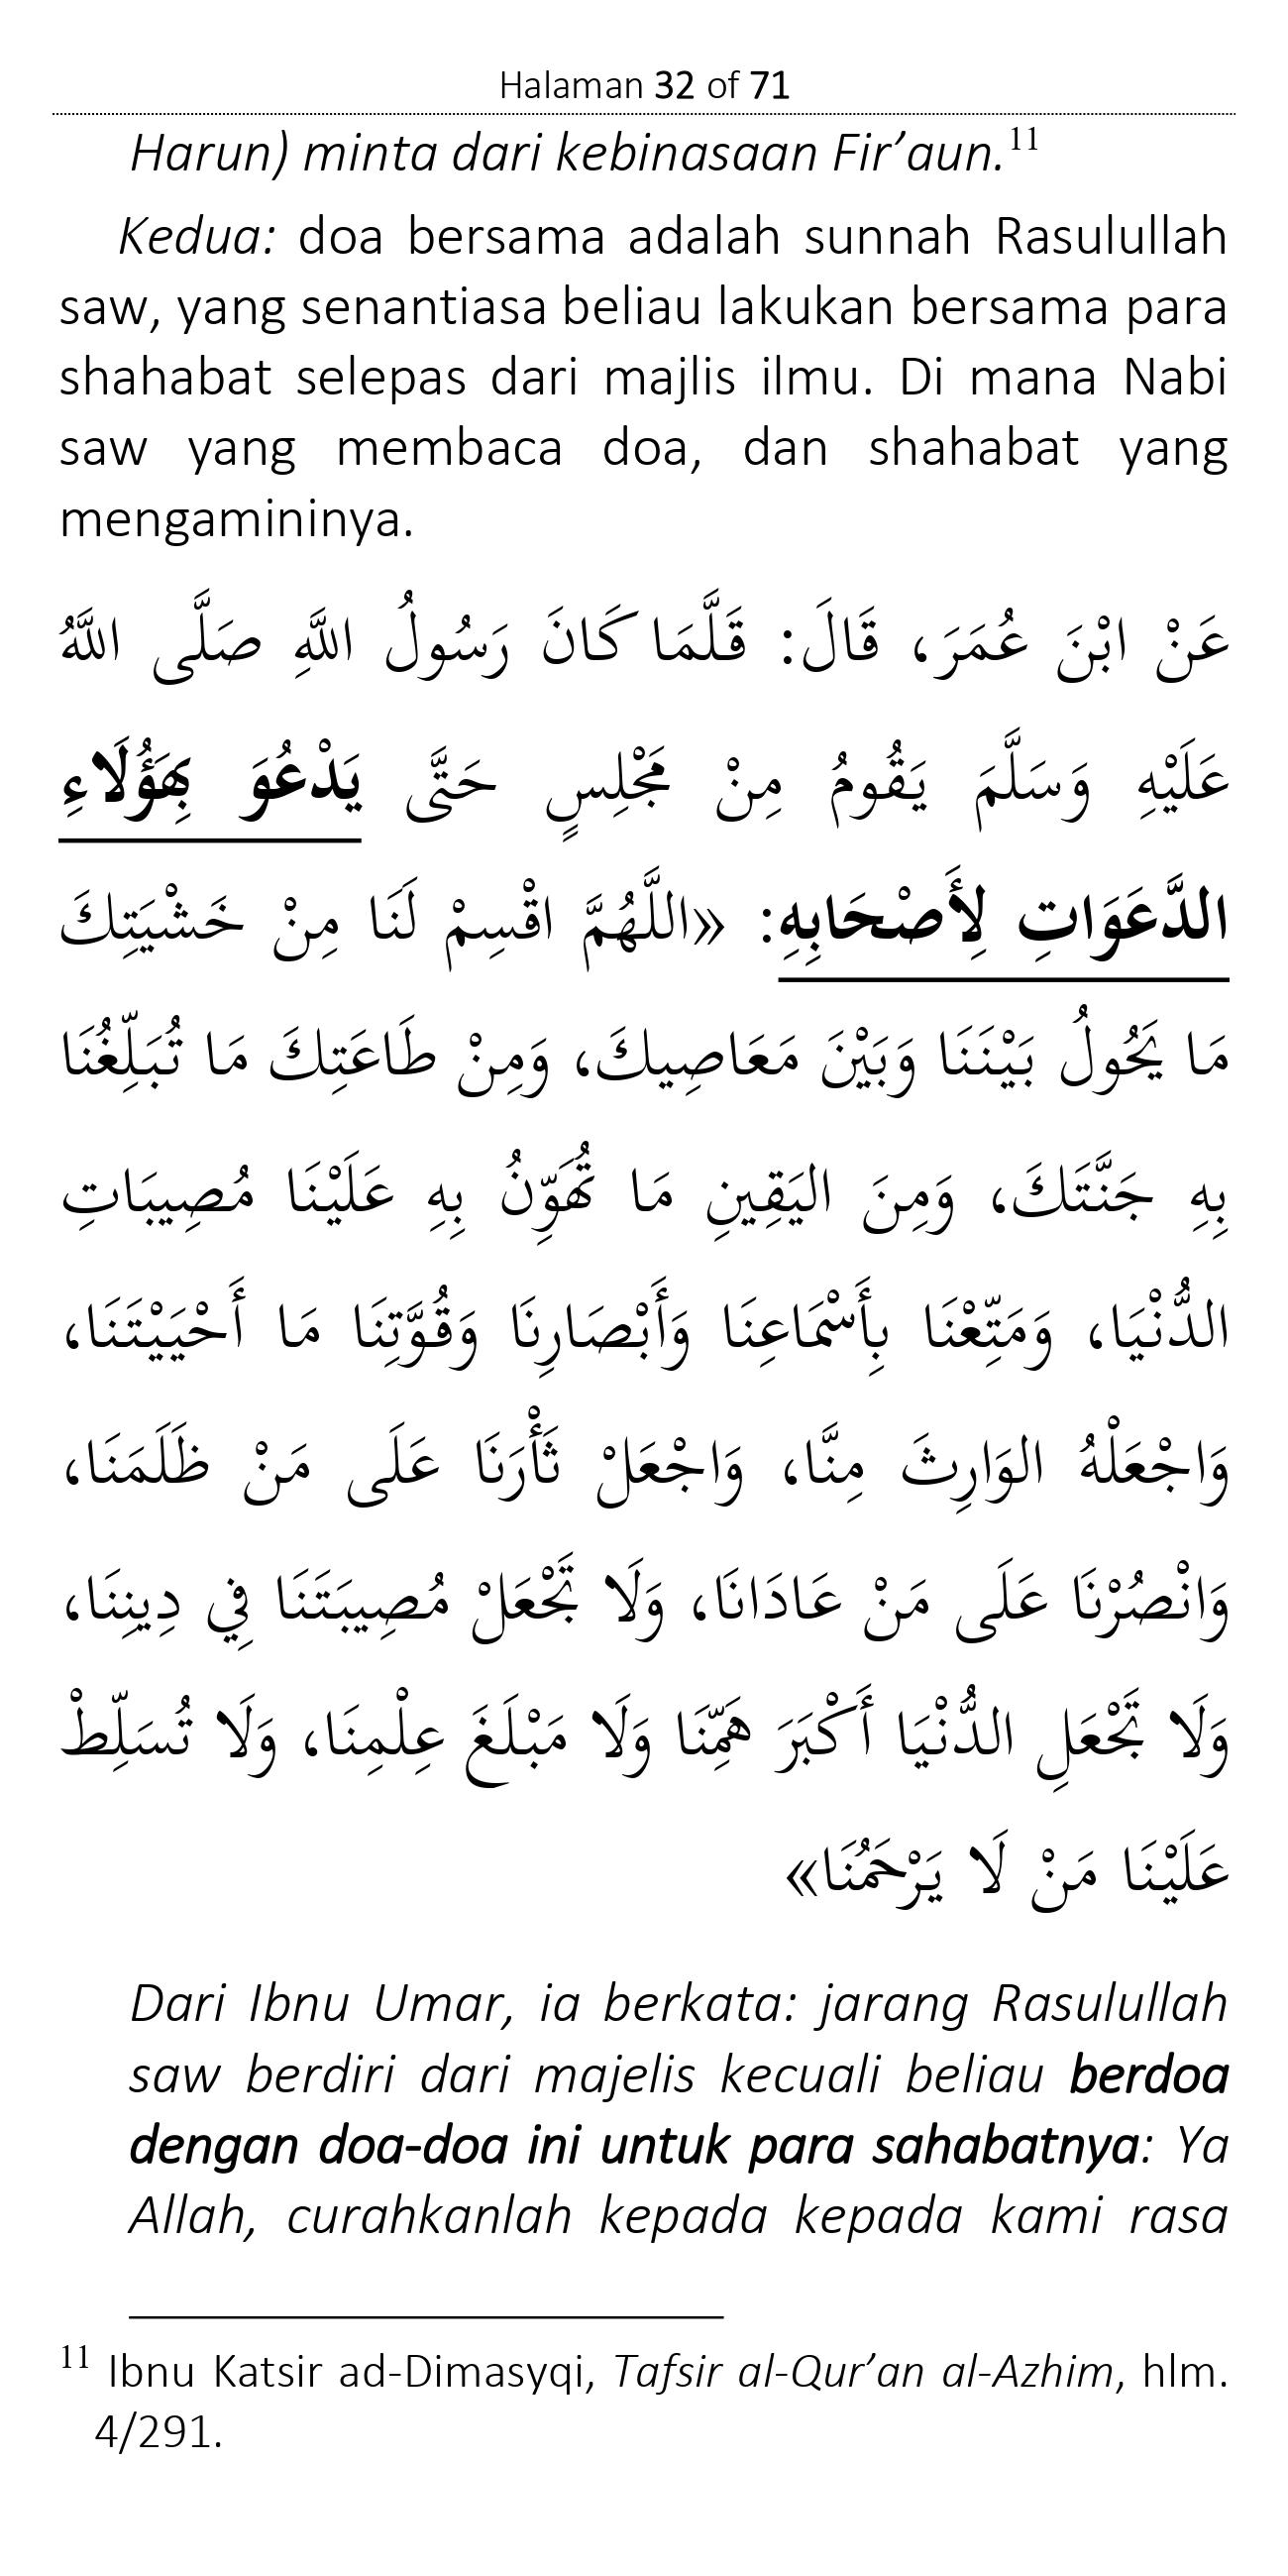 Halaman 32 of 71
Harun) minta dari kebinasaan Fir’aun.11
Kedua: doa bersama adalah sunnah Rasulullah
saw, yang senantiasa beliau lakukan bersama para
shahabat selepas dari majlis ilmu. Di mana Nabi
saw yang membaca doa, dan shahabat yang
mengamininya.
عَنْ ابْنَ عُمَرَ، قَالَ: قَلَّمَا كَانَ رَسُولُ اللَّهِ صَلَّى اللَّهُ
عَلَيْهِ وَسَلَّمَ يَقُومُ مِنْ مَجْلِسٍ حَتَّى يَدْعُوَ بِهَؤُلَاءِ
الدَّعَوَاتِ لِأَصْحَابِهِ: «اللَّهُمَّ اقْسِمْ لَنَا مِنْ خَشْيَتِكَ
مَا يَحُولُ بَيْنَنَا وَبَيْنَ مَعَاصِيكَ، وَمِنْ طَاعَتِكَ مَا تُبَلِّغُنَا
بِهِ جَنَّتَكَ، وَمِنَ اليَقِينِ مَا تُهَوِّنُ بِهِ عَلَيْنَا مُصِيبَاتِ
الدُّنْيَا، وَمَتِّعْنَا بِأَسْمَاعِنَا وَأَبْصَارِنَا وَقُوَّتِنَا مَا أَحْيَيْتَنَا،
وَاجْعَلْهُ الوَارِثَ مِنَّا، وَاجْعَلْ ثَأْرَنَا عَلَى مَنْ ظَلَمَنَا،
وَانْصُرْنَا عَلَى مَنْ عَادَانَا، وَلَا تَجْعَلْ مُصِيبَتَنَا فِي دِينِنَا،
وَلَا تَجْعَلِ الدُّنْيَا أَكْبَرَ هَمِّنَا وَلَا مَبْلَغَ عِلْمِنَا، وَلَا تُسَلِّطْ
عَلَيْنَا مَنْ لَا يَرْحَمُنَا»
Dari Ibnu Umar, ia berkata: jarang Rasulullah
saw berdiri dari majelis kecuali beliau berdoa
dengan doa-doa ini untuk para sahabatnya: Ya
Allah, curahkanlah kepada kepada kami rasa
11 Ibnu Katsir ad-Dimasyqi, Tafsir al-Qur’an al-Azhim, hlm.
4/291.